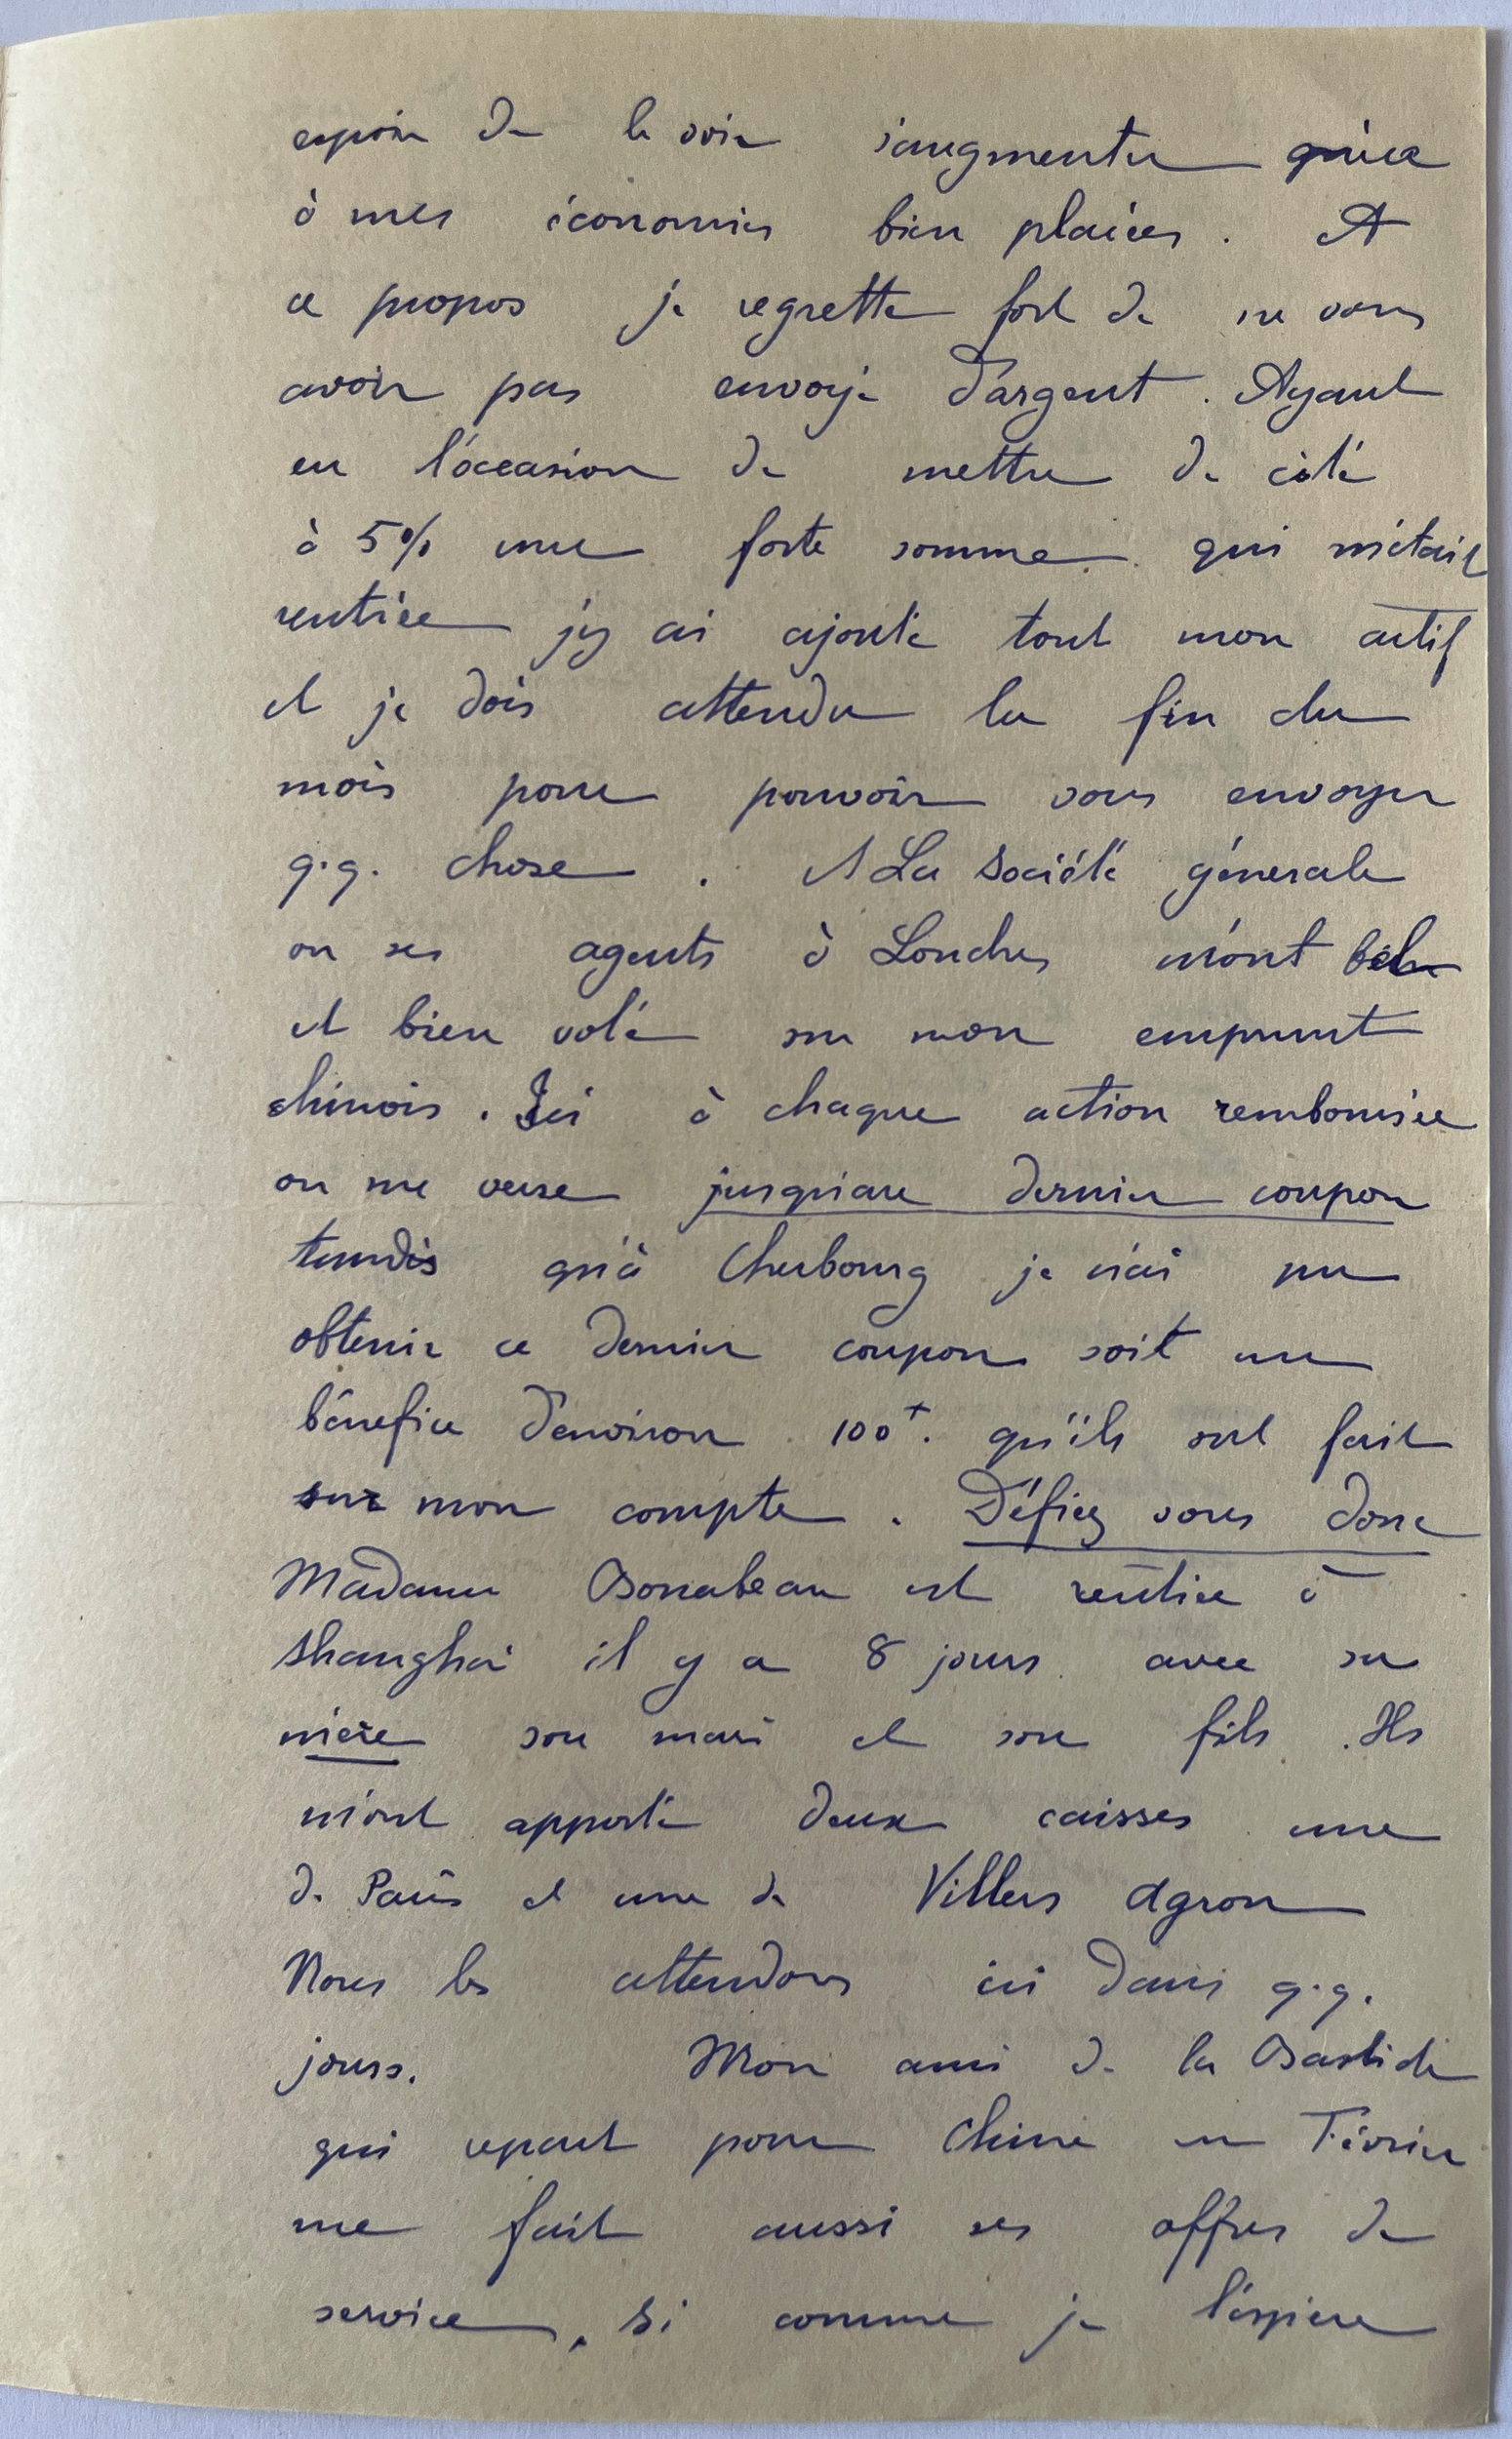 espoir de le voir s'augmenter grâce
à mes économies bien placées. A
ce propos je regrette fort de ne vous
avoir pas envoyé d'argent. Ayant
eu l'occasion de mettre de côté
à 5% une forte somme qui m'était
rentrée j'y ai ajouté tout mon actif
et je dois attendre la fin du
mois pour pouvoir vous envoyer
q.q. chose. A La Société génerale
ou ses agents à Londres m'ont bel
et bien volé sur mon emprunt
chinois. Ici à chaque action remboursée
on me verse jusqu'au dernier coupon
tandis qu'à Cherbourg je n'ai pu
obtenir ce dernier coupon soit un
bénefice d'environ 100f. qu'ils ont fait
sur mon compte. Défiez vous donc
Madame Bonabeau est rentrée à
Shanghai il y a 8 jours avec sa
mère son mari et son fils. Ils
m'ont apporté deux caisses une
de Paris et une de Villers Agron
Nous les attendons ici dans q.q.
jours. Mon ami de la Bastide
qui repart pour Chine en Février
me fait aussi ses offres de
service, si comme je l'éspère